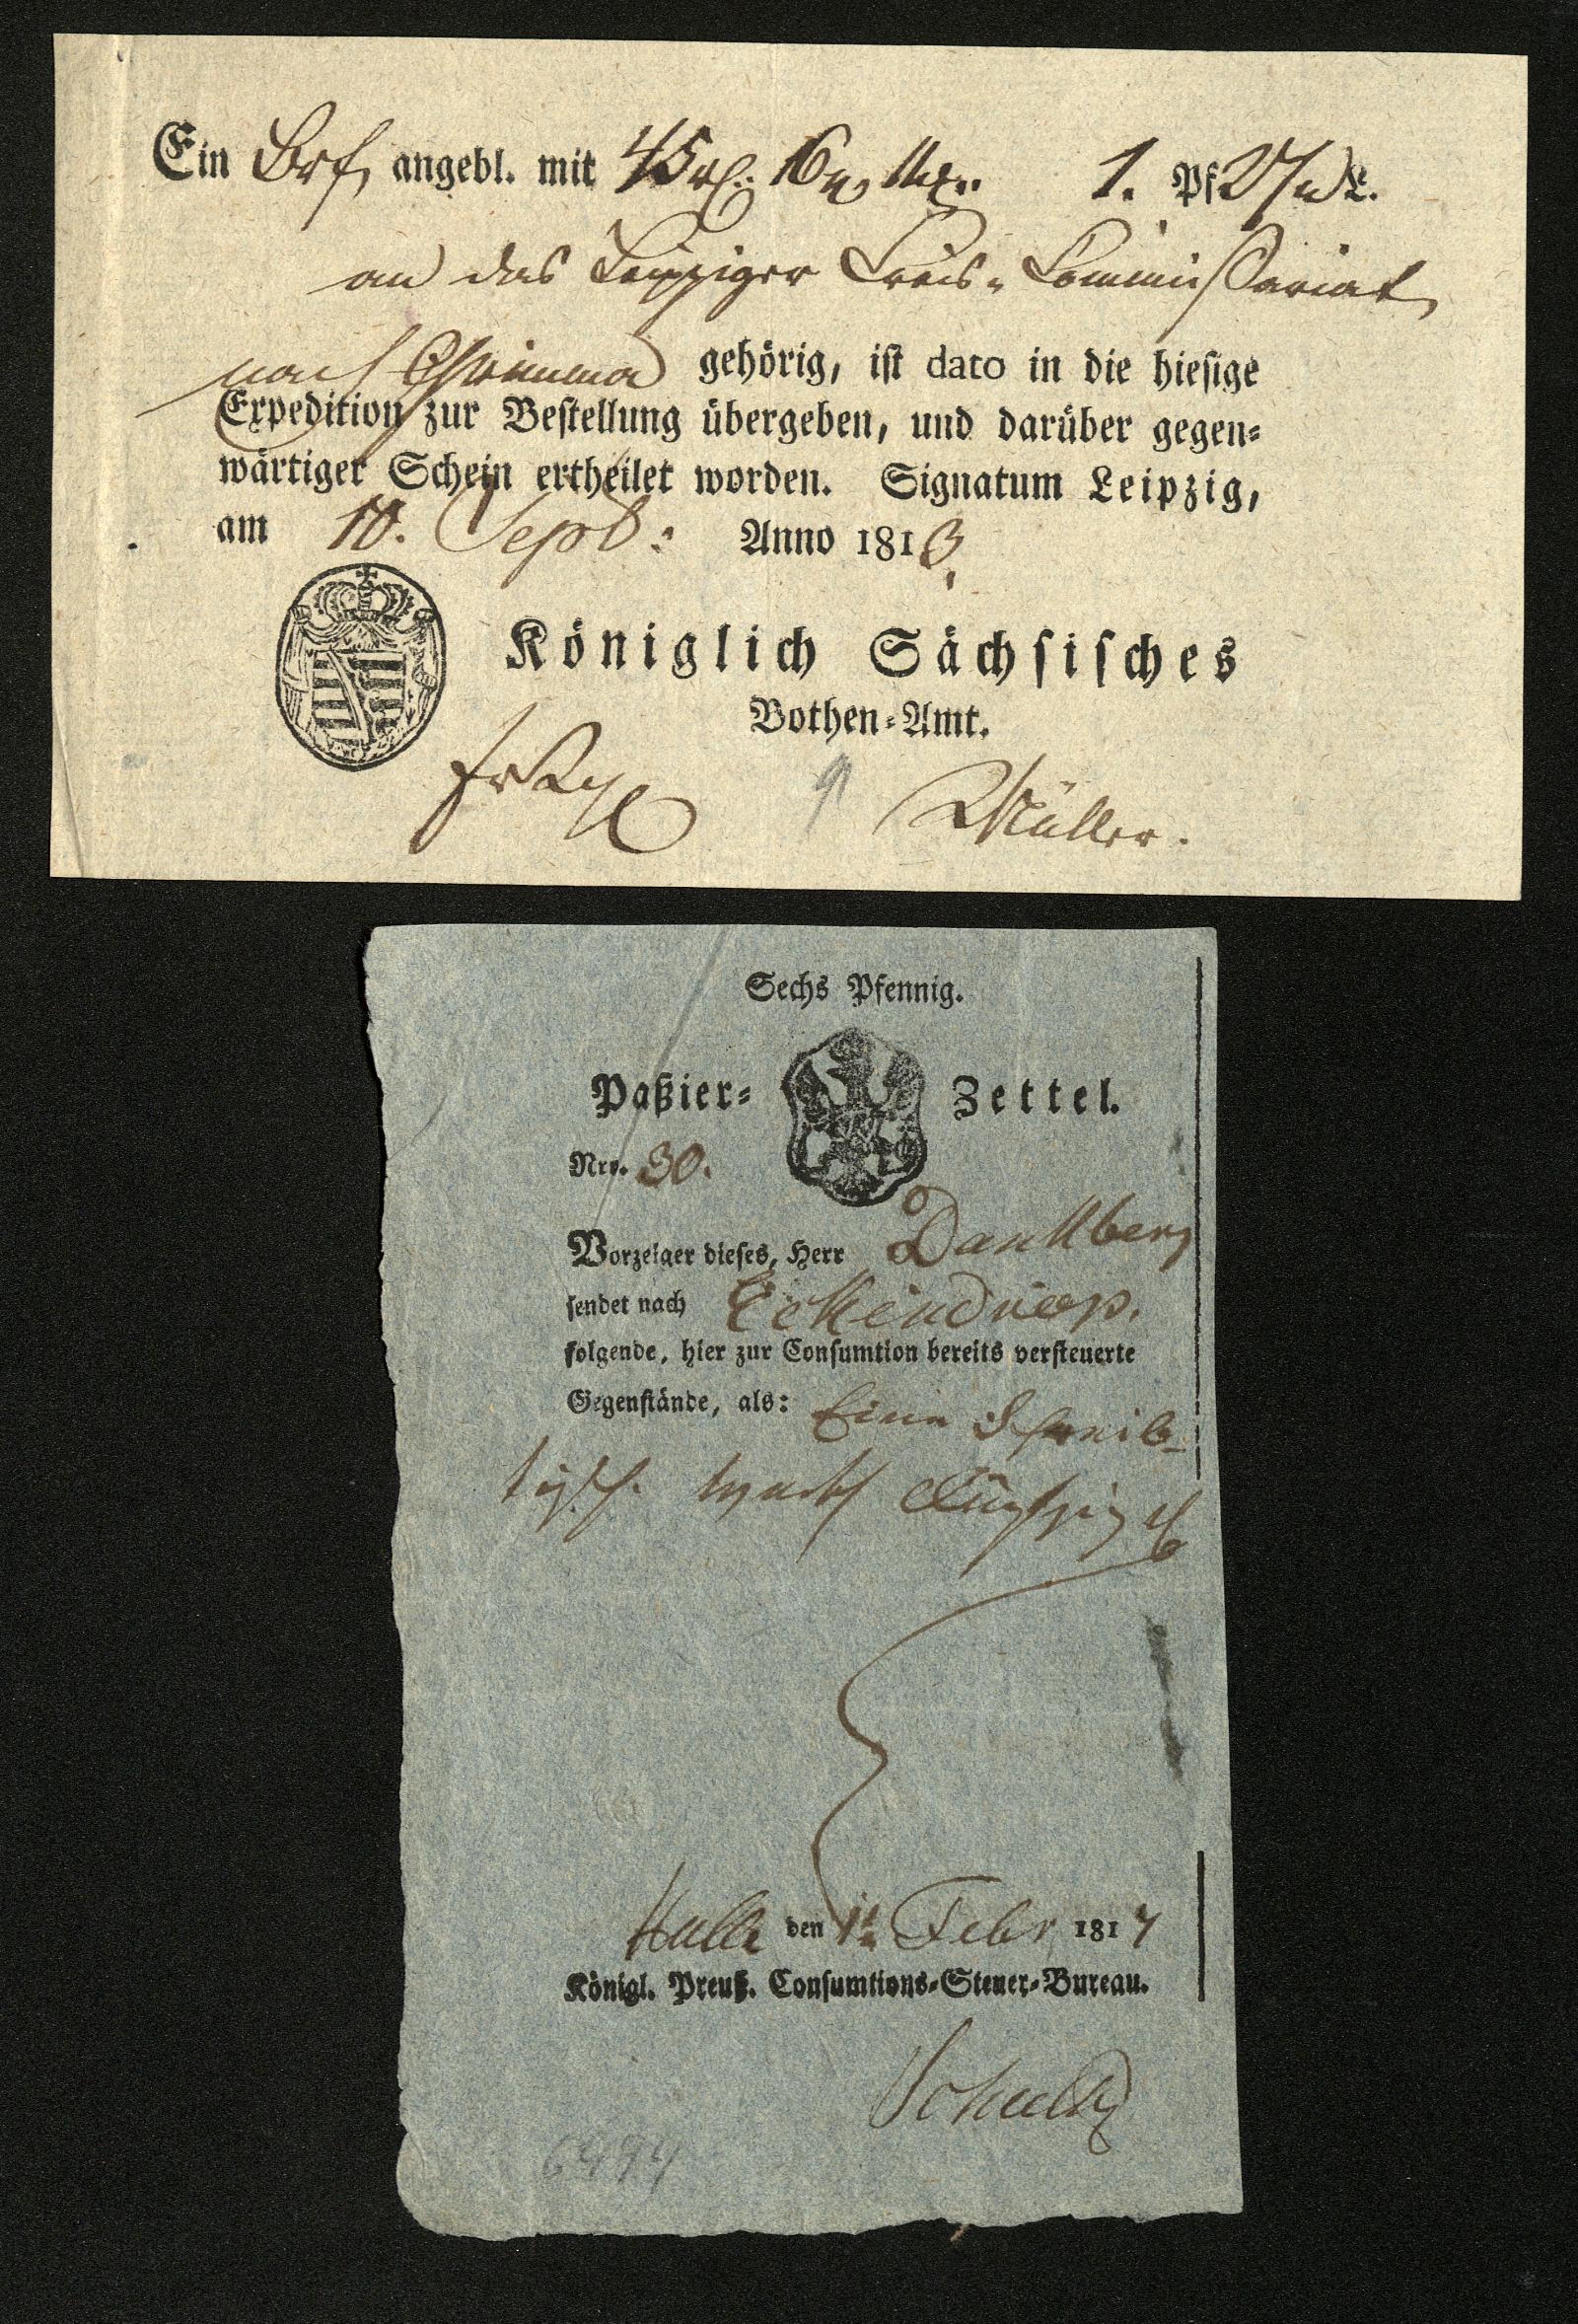 Ein Brf, angebl. mit 45 rl. 16 1. Pf L.
an das Leipziger Creis-Commissariat
nach Grimma gehörig, iſt dato in die hieſige
Expedition zur Beſtellung übergeben, und darüber gegen-
wärtiger Schein ertheilet worden. Signatum Leipzig,
am 10. Sept: Anno 1813.
Königlich Sächſiſches
Bothen-Amt.
Müller.
Sechs Pfennig.
Paßier- Zettel.
Nro. 30.
Vorzeiger dieſes, Herr Dankberg
ſendet nach
folgende, hier zur Conſumtion bereits verſteuerte
Gegenſtände, als: Einen Schreib-
tiſch. Fünfzig ℔
Halle den 1t Febr 1817
Königl. Preuß. Conſumtions-Steuer-Bureau.
Schultz
6494